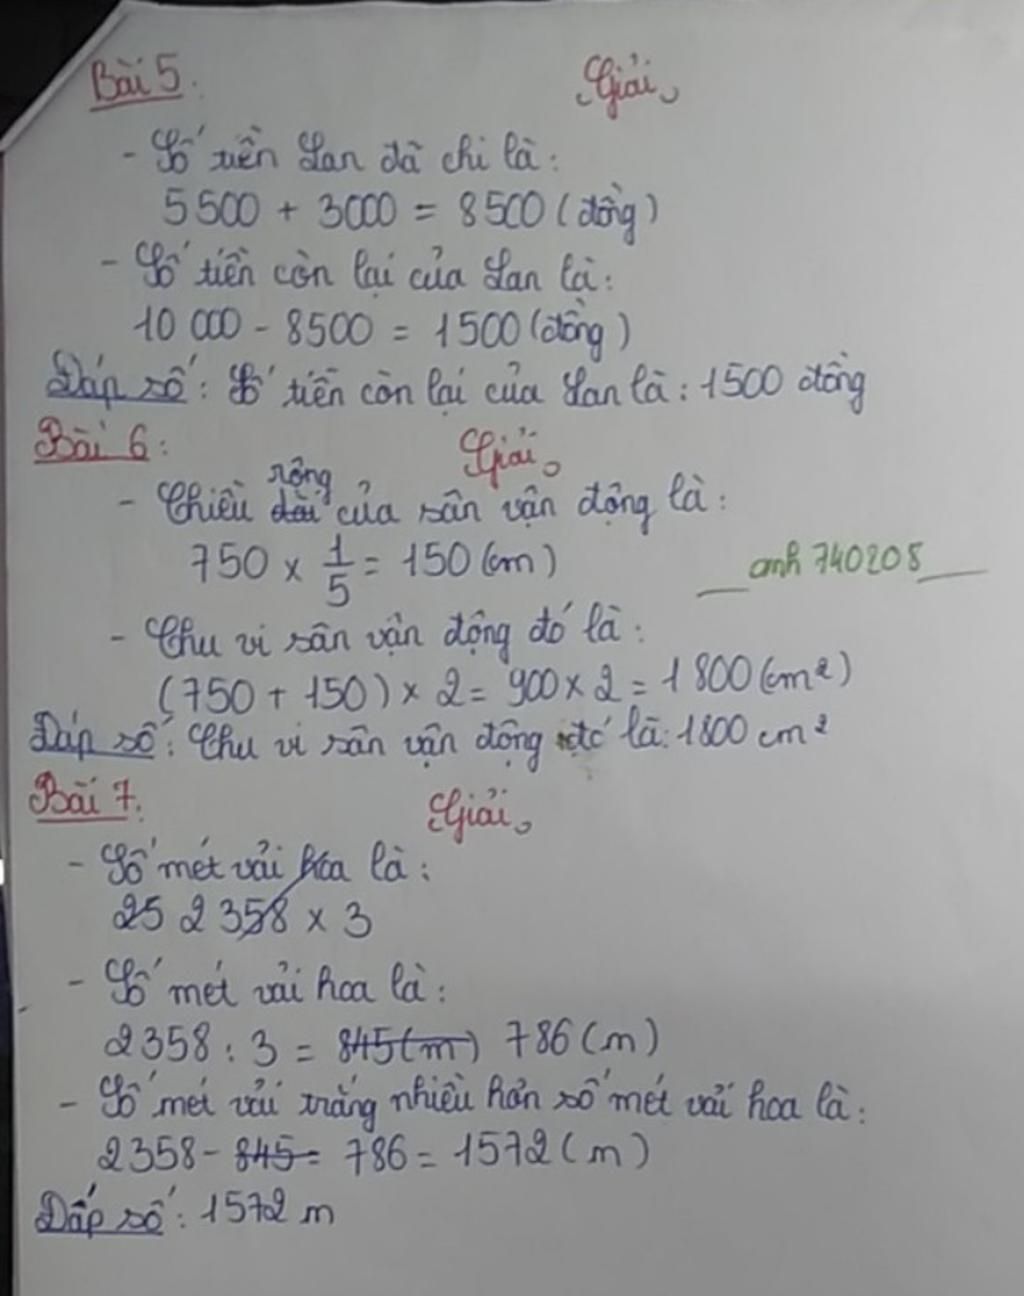 Bài 5.
Giải
- Số tiền Lan đã chi là:
5500 + 3000 = 8500 (đồng)
- Số tiền còn lại của Lan là:
10 000 - 8500 = 1500 (đồng)
Đáp số: Số tiền còn lại của Lan là: 1500 đồng
Bài 6:
Giải
rộng
- Chiều dài của sân vận động là:
750 × 1/5 = 150 (cm)
anh 740208
- Chu vi sân vận động đó là:
(750 + 150) × 2 = 900 × 2 = 1 800 (cm²)
Đáp số: Chu vi sân vận động đó là: 1800 cm²
Bài 7.
Giải
- Số mét vải hoa là:
25 2358 × 3
- Số mét vải hoa là:
2358 : 3 = 845 (m) 786 (m)
- Số mét vải trắng nhiều hơn số mét vải hoa là:
2358 - 845 = 786 = 1572 (m)
Đáp số: 1572 m